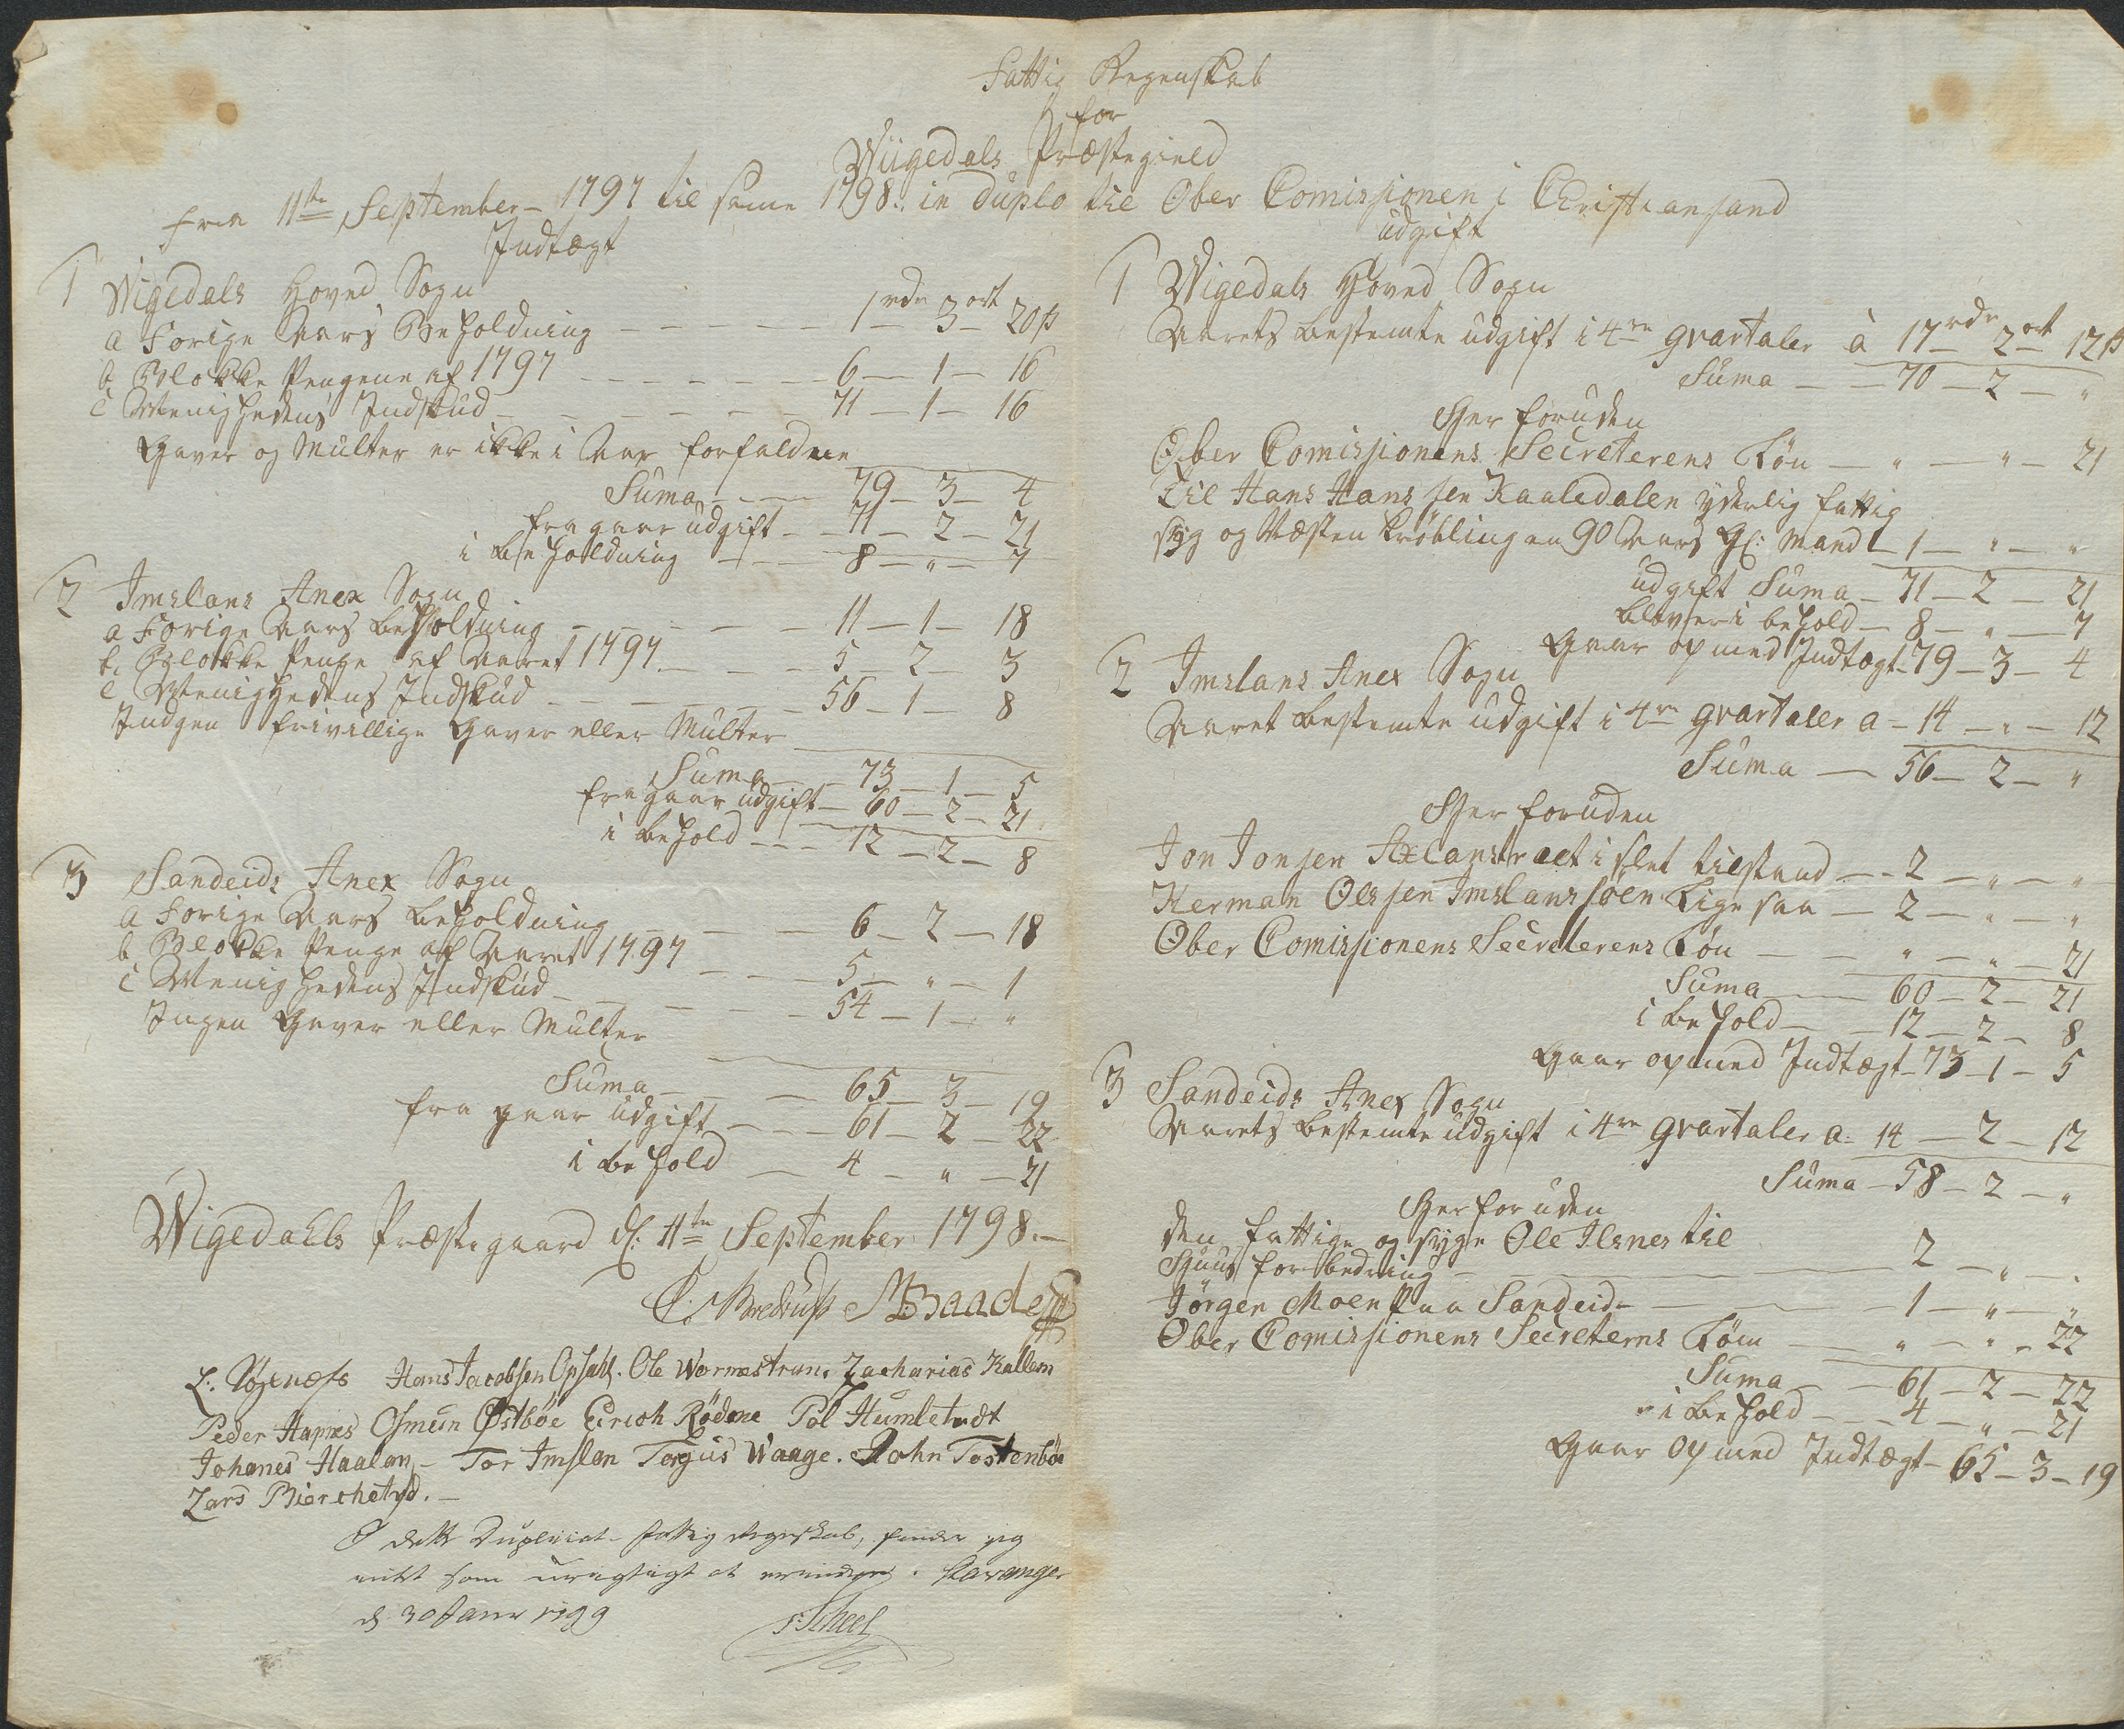 Fattig Regenskab
for
Wiigedals Præstegield
fra 11te September 1797 til same 1798. in duplo til Ober Comissionen i Christiansand
Indtægt
1 Wigedals Hoved Sogn
a Forige Aars Beholdning - - - - - 1rdr 3ort 20ß
b Blokke Pengene af 1797 - - - - - - 6 - 1 - 16
c Menighedens Indskud - - - - - - 71 - 1 - 16
Gaver og Multer er ikke i Aar forfaldne
Suma - - - 79 - 3 - 4
fragaar udgift - 71 - 2 - 21
i beholdning - - 8 - " - 7
2 Imslans Anex Sogn
a Forige Aars beholdning - - - - - 11 - 1 - 18
b. Blokke Penge af Aaret 1797. - - - 5 - 2 - 3
c Menighedens Indskud - - - - - 56 - 1 - 8
Indgen frivillige Gaver eller Multer
Suma - - 73 - 1 - 5
fragaar udgift - 60 - 2 - 21
i behold - - - 12 - 2 - 8
3 Sandeids Anex Sogn
a Forige Aars beholdning - - - 6 - 2 - 18
b Blokke Penge af Aaret 1797 - - - 5 - " - 1
c Menighedens Indskud - - - - 54 - 1 - "
Ingen Gaver eller Multer
Suma - - - 65 - 3 - 19
fra gaar udgift - - - 61 - 2 - 22
i behold - - 4 - " - 21
Wigedahls Præstegaard d: 11te September 1798. -
C. Bredrup M Baade
Hans Jacobsen Opsahl. Ole Wormestran. Zacharias Kallem
Peder Hapnes Osmun Østbøe Eirich Rödne Pol Humlet
Johanes Haalan, - Tor Imslan Tergus Waage. John Tostenbøe
Lars Bierchetvd. -
I dette Duplicat Fattig Regnskab, finder jeg
intet som urigtigt at erindre. Stavanger
d 30 Janr 1799
Scheel
udgift
1 Wigedals Hoved Sogn
Aarets bestemte udgift i 4re qvartaler à 17rdr 2ort 12ß
Suma - - 70 - 2 - "
Her foruden
Ober Comissionens Secreterens Løn - " - " - 21
Til Hans Hanssen Kaaledalen yderlig fattig
syg og næsten Krøbling en 90 Aars gl: Mand - 1 - " - "
udgift Suma - 71 - 2 - 21
bliver i behold - 8 - " - 7
Gaar op med Indtægt - 79 - 3 - 4
2 Imslans Anex Sogn
Aaret bestemte udgift i 4re qvartaler a - 14 - " - 12
Suma - 56 - 2 - "
Her foruden
Jon Jonsen i slet tilstand - - 2 - " - "
Herman Olssen Imslanssöen Lige saa - 2 - " - "
Ober Comissionens Secreterens Løn - - " - " - 21
Suma - - 60 - 2 - 21
i behold - - 12 - 2 - 8
Gaar op med Indtægt - 73 - 1 - 5
3 Sandeids Anex Sogn
Aarets bestemte udgift i 4re qvartaler a. 14 - 2 - 12
Suma - 58 - 2 - "
Her foruden
den fattige og syge Ole Ilsnes til
Huus forbedring - 2 - " - "
Jörgen Moen Paa Sandeid - 1 - " - "
Ober Comissionens Secreterns Løn - " - " - 22
Suma - - 61 - 2 - 22
i behold - - - 4 - " - 21
Gaar op med Indtægt - 65 - 3 - 19